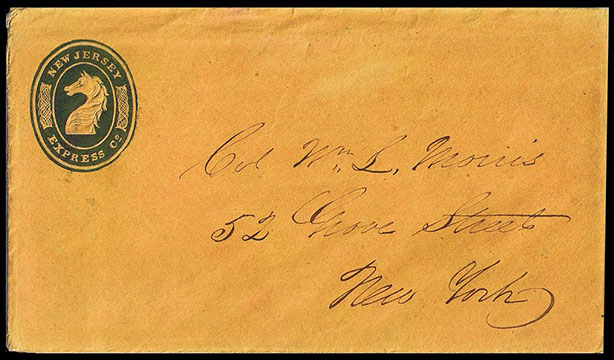 NEW JERSEY
EXPRESS Co
Col Wm L. Morris
52 Grove Street
New York